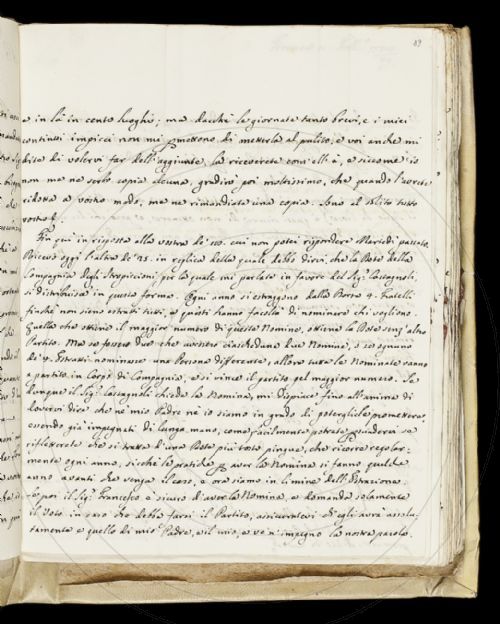 89
e in là in cento luoghi; ma dacchè le giornate tanto brevi, e i miei
continovi impicci non mi permettono di metterla al pulito, e voi anche mi
dite di volervi far dell'aggiunte, la riceverete com'ell'è, e siccome io
non me ne serbo copia alcuna, gradirò poi moltissimo, che quando l'avrete
ridotta a vostro modo, me ne rimandiate una copia. Sono al solito tutto
vostro
Fin qui in risposta alla vostra de' 20. cui non potei rispondere Martedì passato.
Ricevo oggi l'altra de' 25. in replica della quale debbo dirvi, che la Dote della
Compagnia degli per la quale mi parlate in favore del Sig. Castagnoli,
si distribuisce in questa forma. Ogni anno si estraggono dalla Borsa 4. fratelli
finchè non siano estratti tutti, e questi hanno facoltà di nominare chi vogliono.
Quella che ottiene il maggior numero di queste Nomine, ottiene la Dote senz'altro
Partito. Ma se fossero due che avessero ciascheduna due Nomine, o se ognuno
de' 4. Estratti nominasse una Persona differente, allora tutte le Nominate vanno
a partito in Corpo di Compagnia, e si vince il partito pel maggior numero. Se
dunque il Sig. Castagnoli chiede la Nomina, mi dispiace fino all'anima di
dovervi dire che nè mio Padre nè io siamo in grado di potergliela promettere
essendo già impegnati di lunga mano, come facilmente potrete persuadervi se
rifletterete che si tratta d'una Dote più tosto pingue, che ricorre regolar-
mente ogni anno, sicchè le pratiche per aver la Nomina si fanno qualche
anno avanti che venga il caso, e ora siamo in limine dell'Estrazione.
Se poi il Sig. Francesco è sicuro d'aver la Nomina, e domanda solamente
il Voto in caso che debba farsi il Partito, assicuratevi ch'egli avrà assolu-
tamente e quello di mio Padre, e il mio, e ve n'impegno la nostra parola.